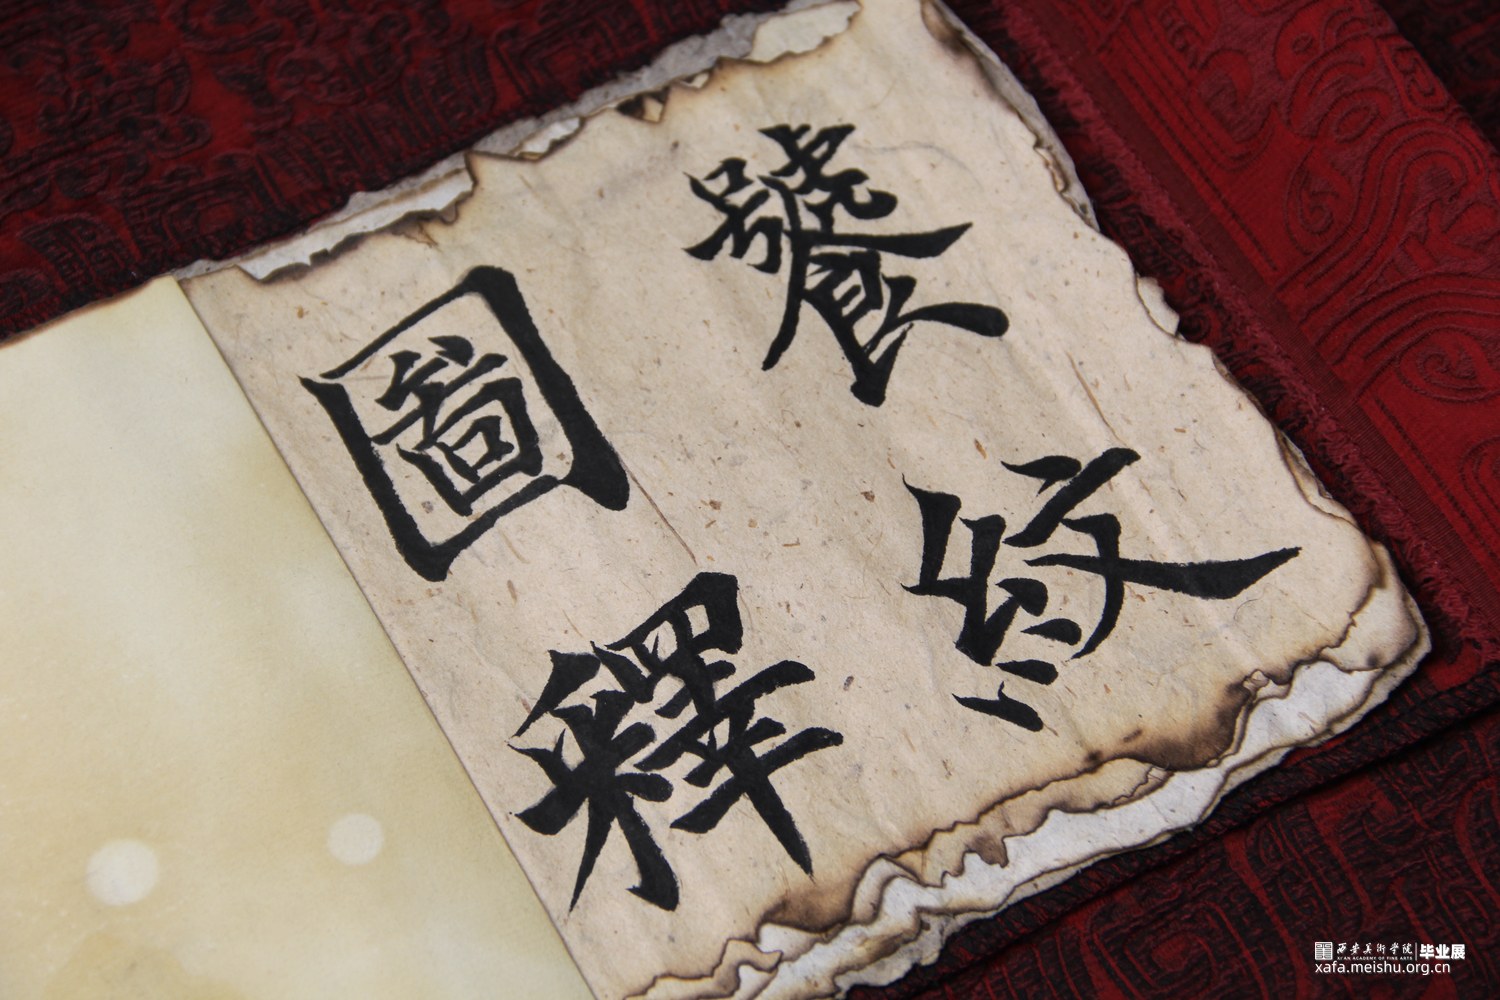 饕紋
圖釋
西安美術学院 毕业展
XI'AN ACADEMY OF FINE ARTS
xafa.meishu.org.cn